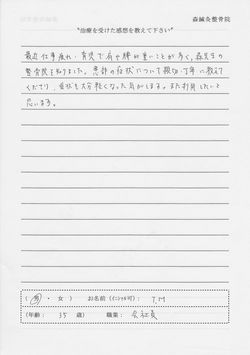 森鍼灸整骨院
"治療を受けた感想を教えて下さい"
最近仕事疲れ・育児で肩や腰が重いことが多く、森先生の
整骨院を知りました。患部の症状について親切・丁寧に教えて
くださり、症状も大分軽くなった気がします。また利用したいと
思います。
(男・女) お名前(イニシャル可): T.M
(年齢: 35 歳) 職業: 会社員